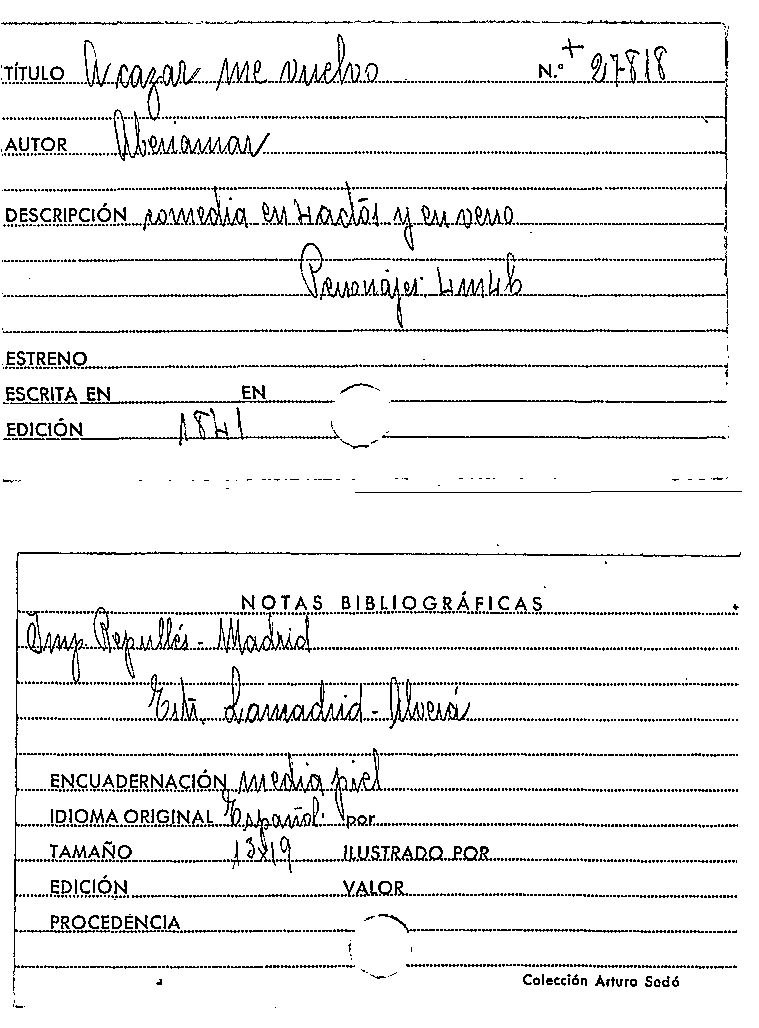 TÍTULO A cazar me vuelvo N.º + 27818
AUTOR Abenamar
DESCRIPCIÓN comedia en 4 actos y en verso
Personajes 4m4h
ESTRENO
ESCRITA EN EN
EDICIÓN 1841
NOTAS BIBLIOGRÁFICAS
Imp Repullés - Madrid
Estr. Lamadrid - Alverá
ENCUADERNACIÓN media piel
IDIOMA ORIGINAL Español: por
TAMAÑO 13x19 ILUSTRADO POR
EDICIÓN VALOR
PROCEDENCIA
Colección Arturo Sedó